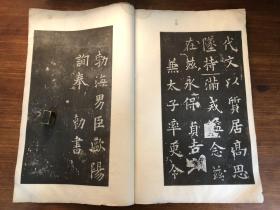 代文以質居高思
墜持滿戒溢念茲
在茲永保貞吉
兼太子率更令
勃海男臣歐陽
詢奉勑書